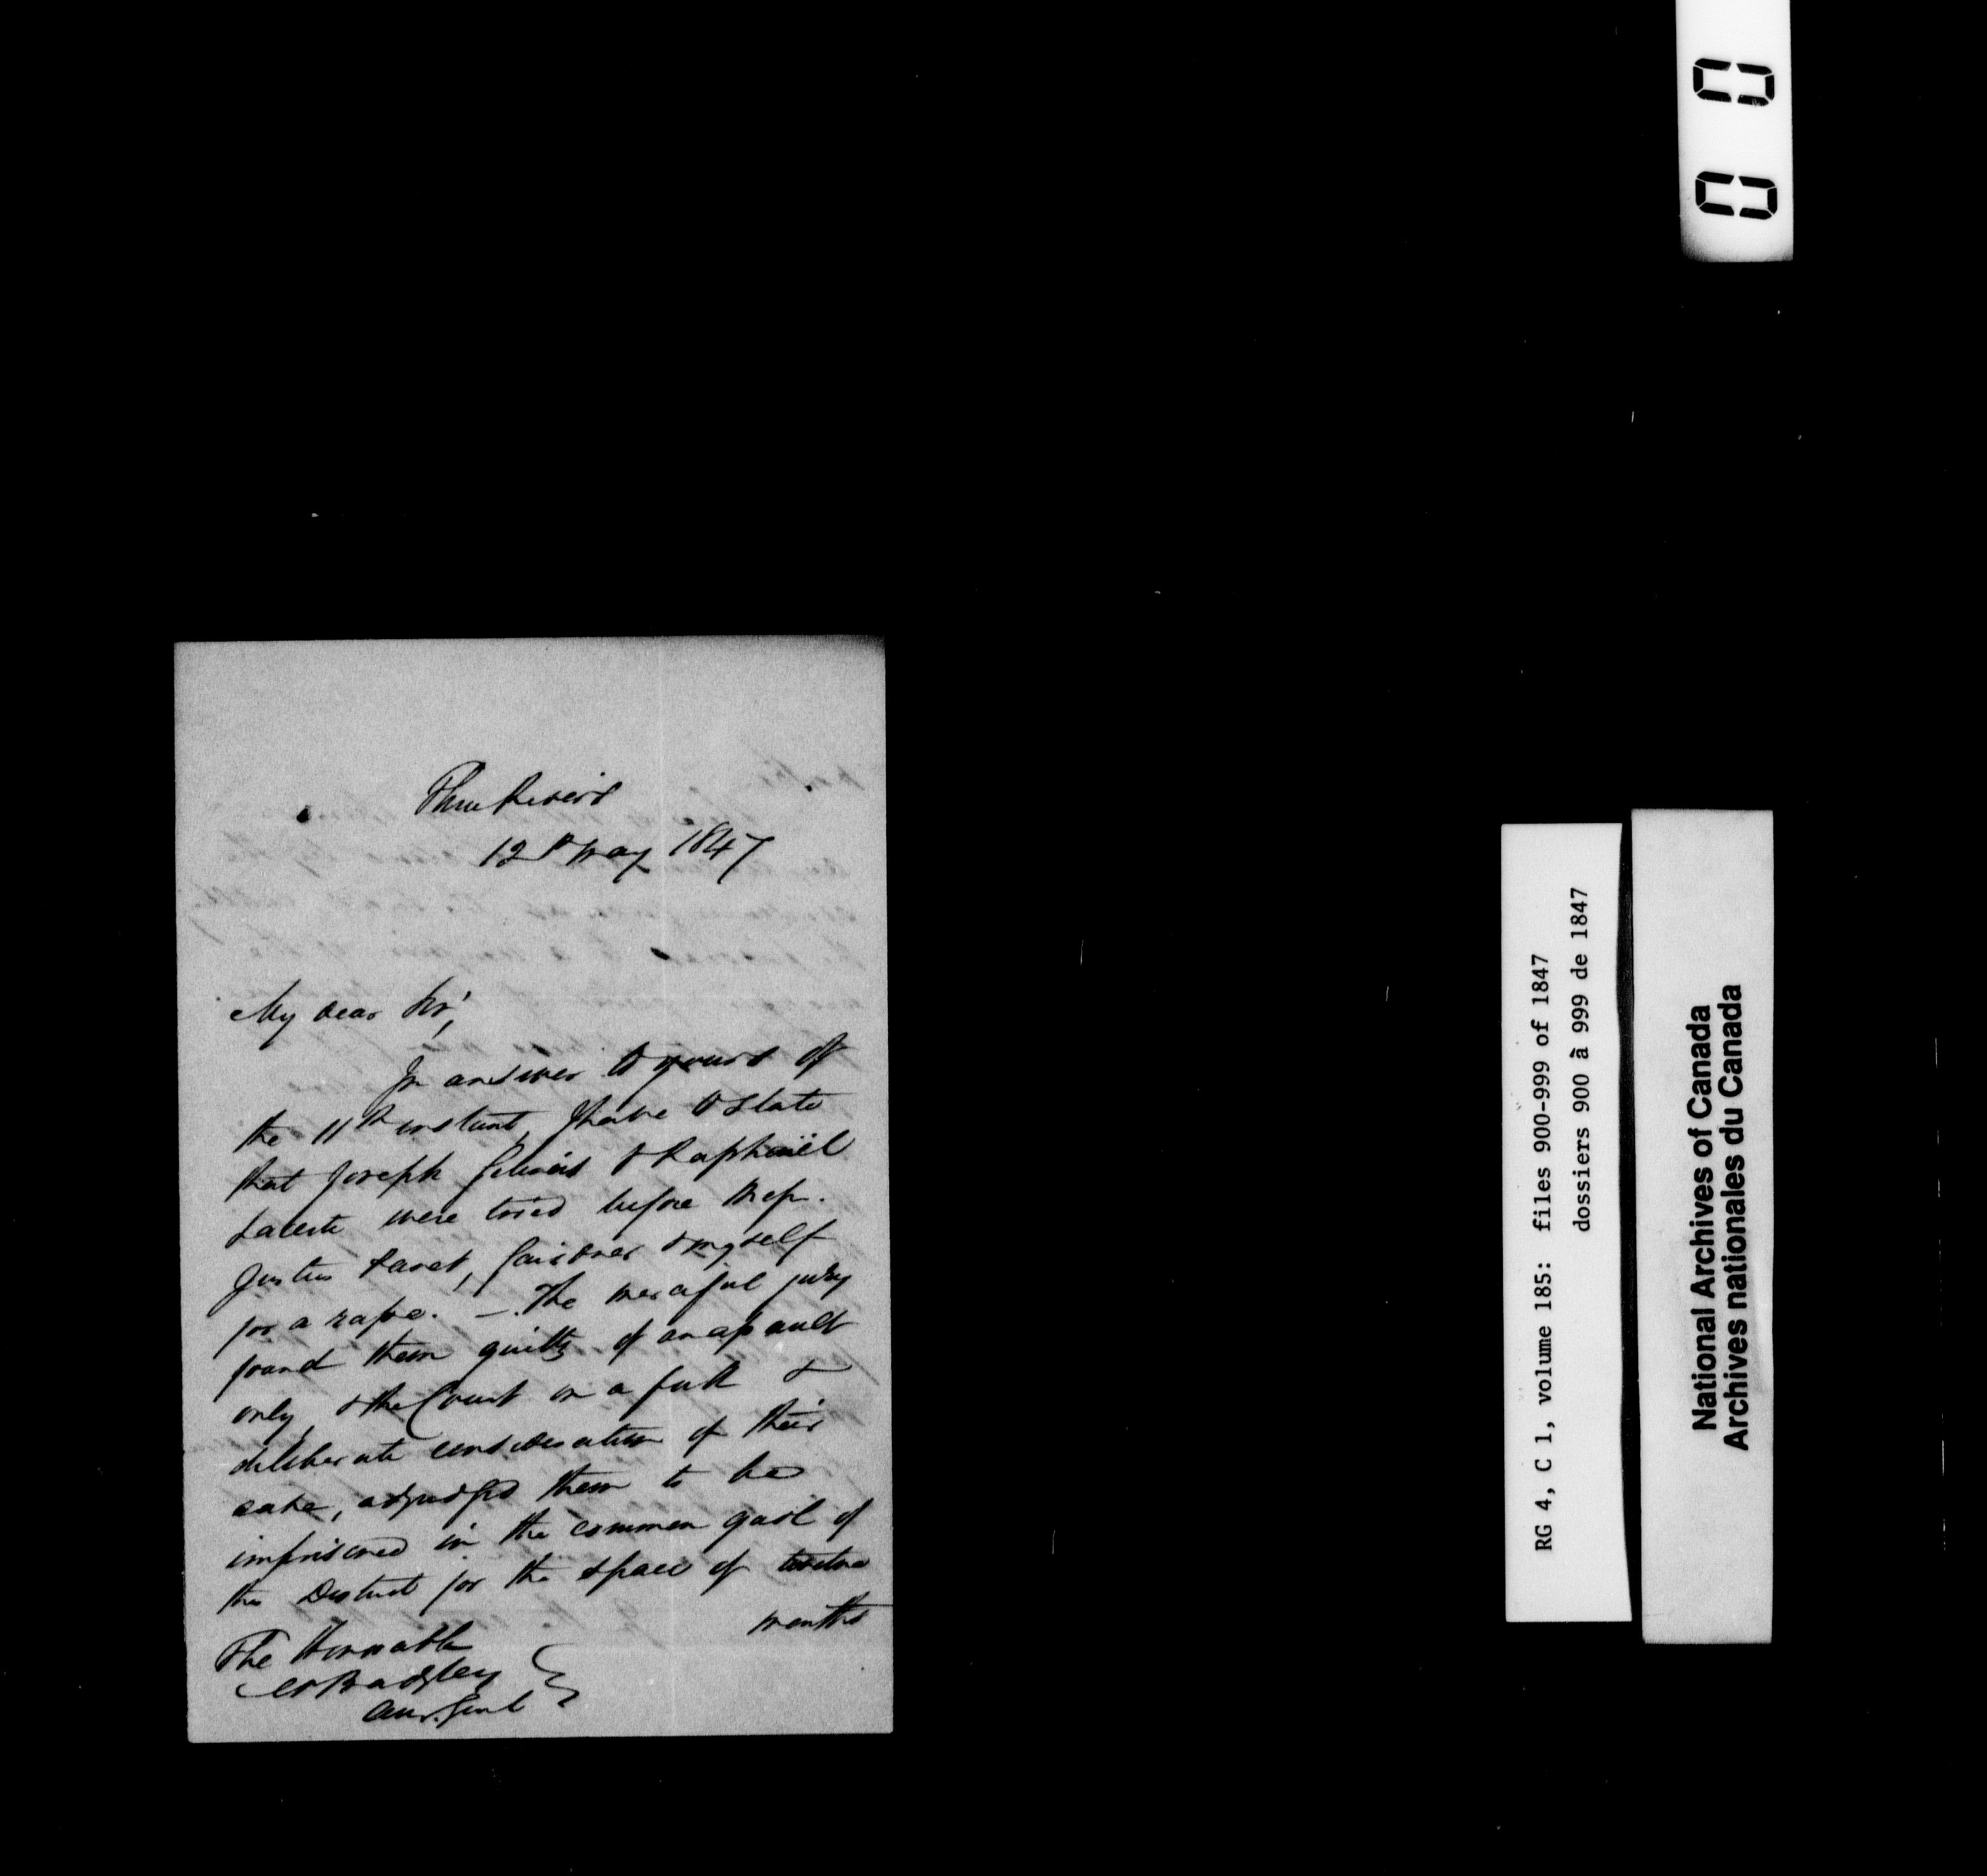 Three Rivers
12th May 1847
My dear Sir,
In answer to yours of
the 11th instant, I have to state
that Joseph & Raphaël
were tried before Mess.
Justices Panet, Gairdner & myself
for a rape. — The merciful jury
found them guilty of an assault
only & the Court on a full &
deliberate consideration of their
case, adjudged them to be
imprisoned in the common gaol of
the District for the space of twelve
months
The Honorable
W Badgley
Genl
0 0
RG 4, C 1, volume 185: files 900-999 of 1847
dossiers 900 à 999 de 1847
National Archives of Canada
Archives nationales du Canada